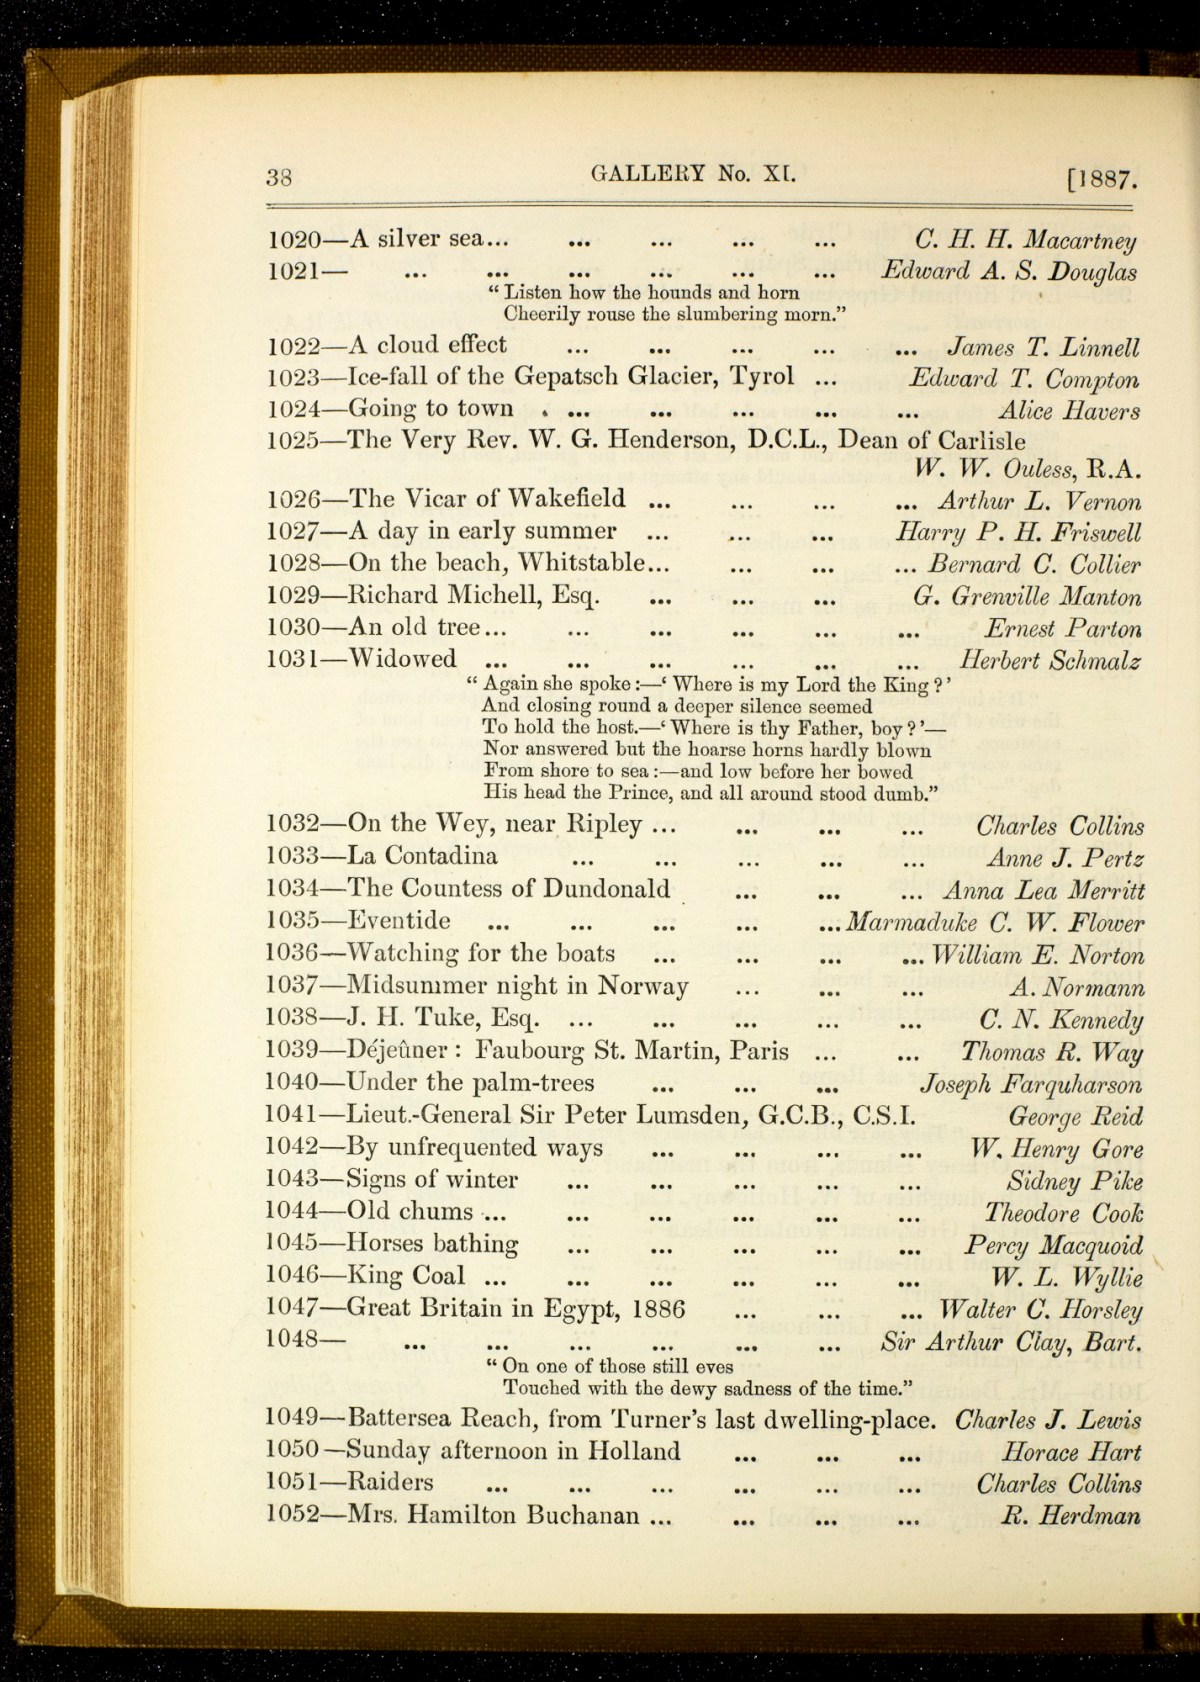 38 GALLERY No. XI. [1887.
1020—A silver sea... ... ... ... ... C. H. H. Macartney
1021— ... ... ... ... ... ... Edward A. S. Douglas
“ Listen how the hounds and horn
Cheerily rouse the slumbering morn.”
1022—A cloud effect ... ... ... ... ... James T. Linnell
1023—Ice-fall of the Gepatsch Glacier, Tyrol ... Edward T. Compton
1024—Going to town . ... ... ... ... ... Alice Havers
1025—The Very Rev. W. G. Henderson, D.C.L., Dean of Carlisle
W. W. Ouless, R.A.
1026—The Vicar of Wakefield ... ... ... ... Arthur L. Vernon
1027—A day in early summer ... ... ... Harry P. H. Friswell
1028—On the beach, Whitstable... ... ... ... Bernard C. Collier
1029—Richard Michell, Esq. ... ... ... G. Grenville Manton
1030—An old tree... ... ... ... ... ... Ernest Parton
1031—Widowed ... ... ... ... ... ... Herbert Schmalz
“ Again she spoke :—‘ Where is my Lord the King ? ’
And closing round a deeper silence seemed
To hold the host.—‘ Where is thy Father, boy ? ’—
Nor answered but the hoarse horns hardly blown
From shore to sea :—and low before her bowed
His head the Prince, and all around stood dumb.”
1032—On the Wey, near Ripley ... ... ... ... Charles Collins
1033—La Contadina ... ... ... ... ... Anne J. Pertz
1034—The Countess of Dundonald ... ... ... Anna Lea Merritt
1035—Eventide ... ... ... ... ... Marmaduke C. W. Flower
1036—Watching for the boats ... ... ... ... William E. Norton
1037—Midsummer night in Norway ... ... ... A. Normann
1038—J. H. Tuke, Esq. ... ... ... ... ... C. N. Kennedy
1039—Déjeûner : Faubourg St. Martin, Paris ... ... Thomas R. Way
1040—Under the palm-trees ... ... ... Joseph Farquharson
1041—Lieut.-General Sir Peter Lumsden, G.C.B., C.S.I. George Reid
1042—By unfrequented ways ... ... ... ... W. Henry Gore
1043—Signs of winter ... ... ... ... ... Sidney Pike
1044—Old chums ... ... ... ... ... ... Theodore Cook
1045—Horses bathing ... ... ... ... ... Percy Macquoid
1046—King Coal ... ... ... ... ... ... W. L. Wyllie
1047—Great Britain in Egypt, 1886 ... ... ... Walter C. Horsley
1048— ... ... ... ... ... ... Sir Arthur Clay, Bart.
“ On one of those still eves
Touched with the dewy sadness of the time.”
1049—Battersea Reach, from Turner’s last dwelling-place. Charles J. Lewis
1050—Sunday afternoon in Holland ... ... ... Horace Hart
1051—Raiders ... ... ... ... ... ... Charles Collins
1052—Mrs. Hamilton Buchanan ... ... ... ... R. Herdman